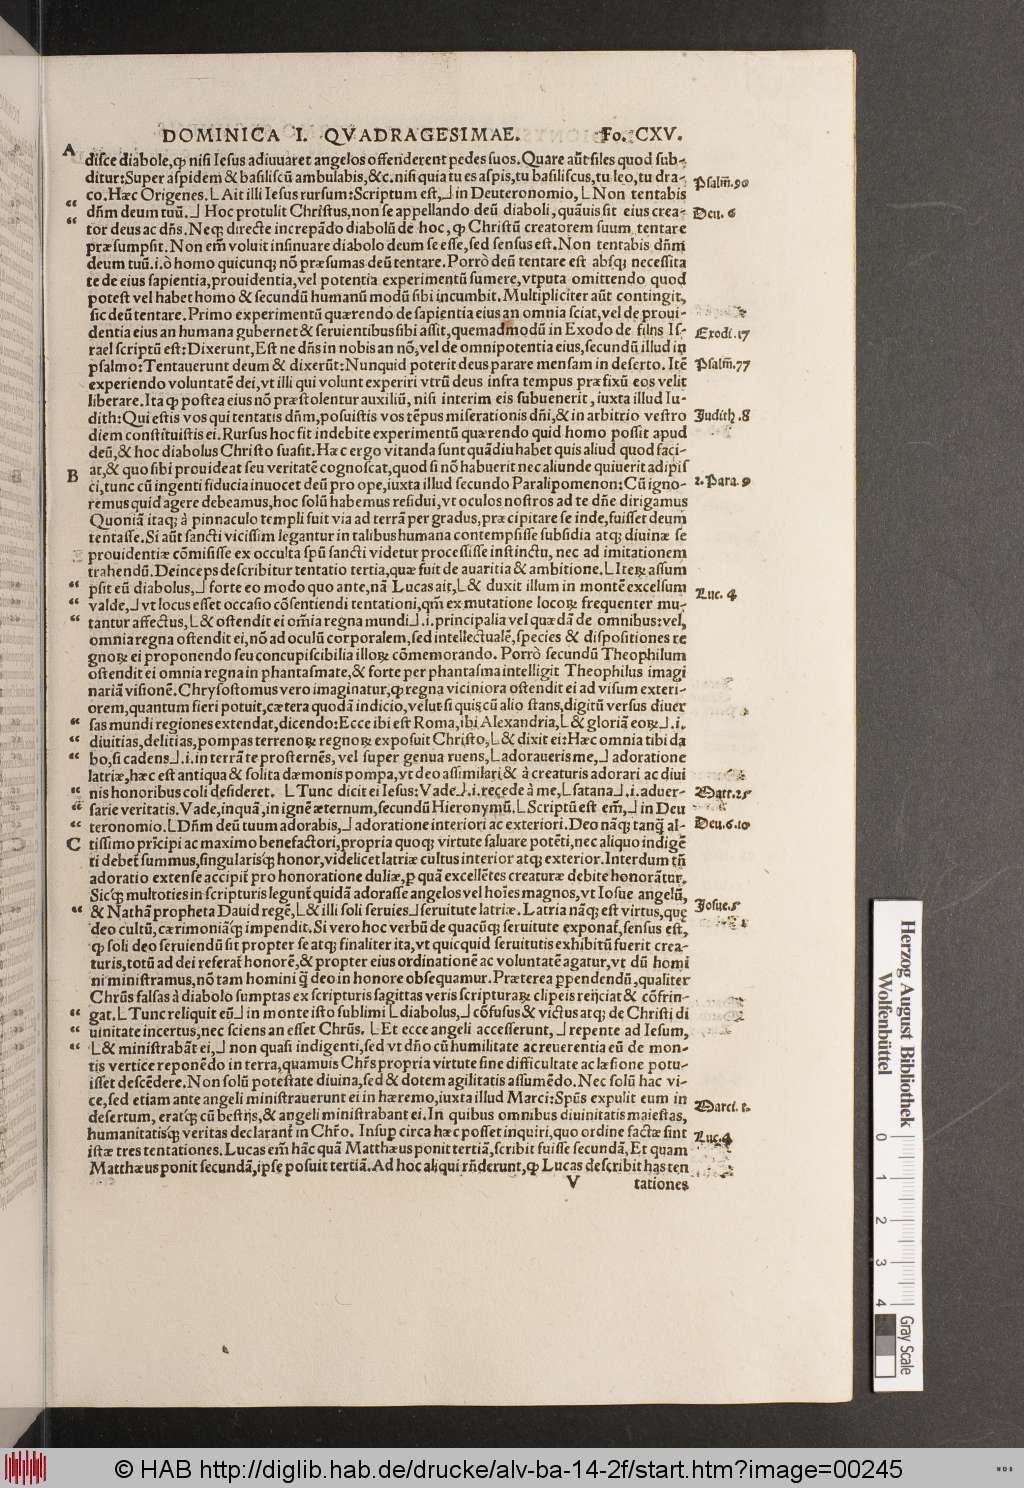 DOMINICA I. QVADRAGESIMAE. Fo. CXV.
A
disce diabole,ꝙ nisi Iesus adiuuaret angelos offenderent pedes suos. Quare aũt siles quod sub-
ditur:Super aspidem & basiliscũ ambulabis,&c. nisi quia tu es aspis,tu basiliscus,tu leo,tu dra-
Psalm̃.90
co. Hæc Origenes. ⌊Ait illi Iesus rursum:Scriptum est,⌋ in Deuteronomio, ⌊Non tentabis
dñm deum tuũ.⌋ Hoc protulit Christus,non se appellando deũ diaboli, quãuis sit eius crea-
Deu. 6
tor deus ac dñs. Neqꝫ directe increpãdo diabolũ de hoc, ꝙ Christũ creatorem suum tentare
præsumpsit. Non em̃ voluit insinuare diabolo deum se esse, sed sensus est. Non tentabis dñm
deum tuũ.i.ò homo quicunqꝫ nõ præsumas deũ tentare. Porrò deũ tentare est absqꝫ necessita
te de eius sapientia,prouidentia,vel potentia experimentũ sumere,vtputa omittendo quod
potest vel habet homo & secundũ humanũ modũ sibi incumbit. Multipliciter aũt contingit,
sic deũ tentare. Primo experimentũ quærendo de sapientia eius an omnia sciat,vel de proui-
dentia eius an humana gubernet & seruientibus sibi assit,quemadmodũ in Exodo de filijs Is-
Exodi.17
rael scriptũ est: Dixerunt,Est ne dñs in nobis an nõ,vel de omnipotentia eius,secundũ illud in
psalmo:Tentauerunt deum & dixerũt:Nunquid poterit deus parare mensam in deserto. Itẽ
Psalm̃.77
experiendo voluntatẽ dei,vt illi qui volunt experiri vtrũ deus infra tempus præfixũ eos velit
liberare. Ita ꝙ postea eius nõ præstolentur auxiliũ, nisi interim eis subuenerit, iuxta illud Iu-
dith: Qui estis vos qui tentatis dñm,posuistis vos tẽpus miserationis dñi,& in arbitrio vestro
Judith .8
diem constituistis ei. Rursus hoc fit indebite experimentũ quærendo quid homo possit apud
deũ,& hoc diabolus Christo suasit. Hæc ergo vitanda sunt quãdiu habet quis aliud quod faci-
at,& quo sibi prouideat seu veritatẽ cognoscat,quod si nõ habuerit nec aliunde quiuerit adipis
B
ci,tunc cũ ingenti fiducia inuocet deũ pro ope,iuxta illud secundo Paralipomenon:Cũ igno-
2.Para.9
remus quid agere debeamus,hoc solũ habemus residui,vt oculos nostros ad te dñe dirigamus
Quoniã itaqꝫ à pinnaculo templi fuit via ad terrã per gradus,præcipitare se inde,fuisset deum
tentasse. Si aũt sancti vicissim legantur in talibus humana contempsisse subsidia atqꝫ diuinæ se
prouidentiæ cõmisisse ex occulta spũ sancti videtur processisse instinctu, nec ad imitationem
trahendũ. Deinceps describitur tentatio tertia,quæ fuit de auaritia & ambitione. ⌊Iterꝝ assum
psit eũ diabolus,⌋ forte eo modo quo ante,nã Lucas ait,⌊& duxit illum in montẽ excelsum
Luc. 4
valde,⌋ vt locus esset occasio cõsentiendi tentationi,qm̃ ex mutatione locoꝝ frequenter mu-
tantur affectus,⌊& ostendit ei om̃ia regna mundi⌋.i.principalia vel quædã de omnibus: vel,
omnia regna ostendit ei,nõ ad oculũ corporalem,sed intellectualẽ,species & dispositiones re
gnoꝝ ei proponendo seu concupiscibilia illoꝝ cõmemorando. Porrò secundũ Theophilum
ostendit ei omnia regna in phantasmate,& forte per phantasma intelligit Theophilus imagi
nariã visionẽ. Chrysostomus vero imaginatur,ꝙ regna viciniora ostendit ei ad visum exteri-
orem,quantum fieri potuit,cætera quodã indicio,velut si quis cũ alio stans,digitũ versus diuer
sas mundi regiones extendat,dicendo:Ecce ibi est Roma,ibi Alexandria,⌊& gloriã eoꝝ⌋.i.
diuitias,delitias,pompas terrenoꝝ regnoꝝ exposuit Christo,⌊& dixit ei: Hæc omnia tibi da
bo,si cadens⌋.i.in terrã te prosternẽs, vel super genua ruens,⌊adoraueris me,⌋ adoratione
latriæ,hæc est antiqua & solita dæmonis pompa,vt deo assimilari & à creaturis adorari ac diui
nis honoribus coli desideret. ⌊Tunc dicit ei Iesus: Vade⌋.i.recede à me, ⌊satana⌋.i.aduer-
Matt.25
sarie veritatis. Vade,inquã,in ignẽ æternum,secundũ Hieronymũ. ⌊Scriptũ est em̃,⌋ in Deu
teronomio. ⌊Dñm deũ tuum adorabis,⌋ adoratione interiori ac exteriori. Deo nãqꝫ tanqꝫ al-
Deu.6.10
C
tissimo prĩcipi ac maximo benefactori,propria quoqꝫ virtute saluare potẽti,nec aliquo indigẽ
ti debet summus,singularisqꝫ honor,videlicet latriæ cultus interior atqꝫ exterior. Interdum tñ
adoratio extense accipit pro honoratione duliæ,ꝑ quã excellẽtes creaturæ debite honorãtur.
Sicqꝫ multoties in scripturis legunt quidã adorasse angelos vel hoĩes magnos,vt Iosue angelũ,
Josue.5
& Nathã propheta Dauid regẽ,⌊& illi soli seruies⌋ seruitute latriæ. Latria nãqꝫ est virtus,que
deo cultũ, cærimoniãqꝫ impendit. Si vero hoc verbũ de quacũqꝫ seruitute exponat, sensus est,
ꝙ soli deo seruiendũ sit propter se atqꝫ finaliter ita,vt quicquid seruitutis exhibitũ fuerit crea-
turis,totũ ad dei referat honorẽ,& propter eius ordinationẽ ac voluntatẽ agatur,vt dũ homi
ni ministramus,nõ tam homini q̃ deo in honore obsequamur. Præterea ꝑpendendũ,qualiter
Chr̃us falsas à diabolo sumptas ex scripturis sagittas veris scripturaꝝ clipeis reijciat & cõfrin-
gat. ⌊Tunc reliquit eũ⌋ in monte isto sublimi ⌊diabolus,⌋ cõfusus & victus atqꝫ de Christi di
uinitate incertus,nec sciens an esset Chr̃us. ⌊Et ecce angeli accesserunt, ⌋ repente ad Iesum,
⌊& ministrabãt ei,⌋ non quasi indigenti,sed vt dño cũ humilitate ac reuerentia eũ de mon-
tis vertice reponẽdo in terra,quamuis Chr̃s propria virtute sine difficultate ac læsione potu-
isset descẽdere. Non solũ potestate diuina,sed & dotem agilitatis assumẽdo. Nec solũ hac vi-
ce,sed etiam ante angeli ministrauerunt ei in hæremo,iuxta illud Marci:Spũs expulit eum in
Marci. 1.
desertum, eratqꝫ cũ bestijs,& angeli ministrabant ei. In quibus omnibus diuinitatis maiestas,
humanitatisqꝫ veritas declarant in Chr̃o. Insuꝑ circa hæc posset inquiri,quo ordine factæ sint
Luc.4
istæ tres tentationes. Lucas em̃ hãc quã Matthæus ponit tertiã,scribit fuisse secundã, Et quam
Matthæus ponit secundã,ipse posuit tertiã. Ad hoc aliqui rñderunt,ꝙ Lucas describit has ten
V tationes
Herzog August Bibliothek
Wolfenbüttel
0 1 2 3 4
Gray Scale
© HAB http://diglib.hab.de/drucke/alv-ba-14-2f/start.htm?image=00245